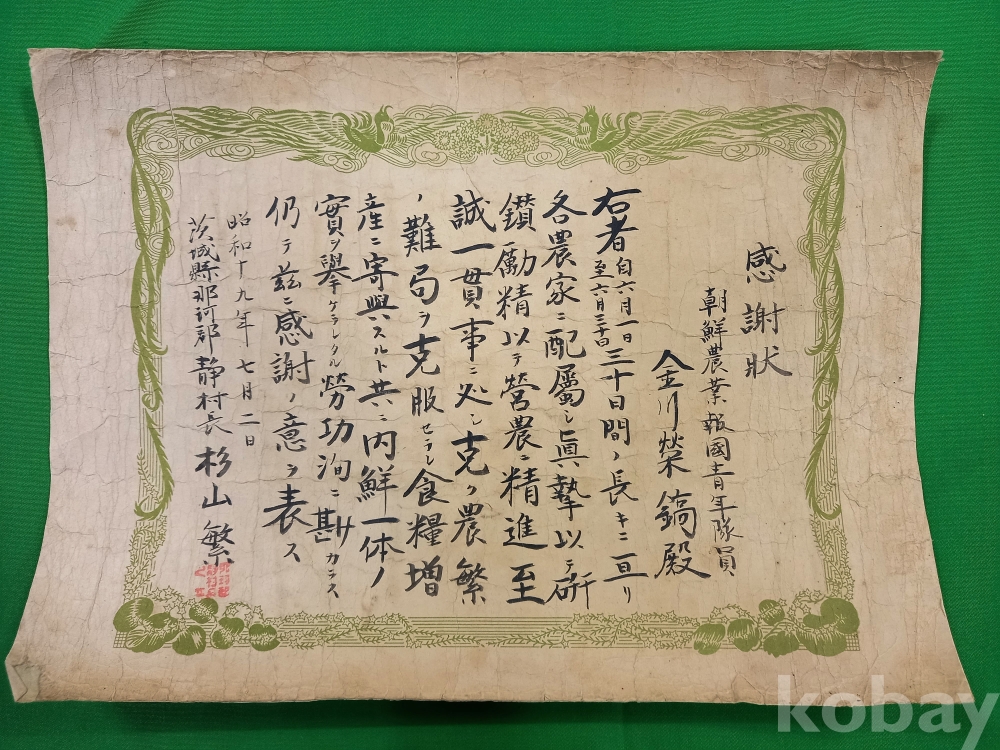 感謝狀
朝鮮農業報國青年隊員
金川榮鎬殿
右者自六月一日至六月三十日三十日間ノ長キニ亘リ
各農家ニ配屬シ眞摯以テ研
鑽勵精以テ營農ニ精進至
誠一貫事ニ処シ克ク農繁
ノ難局ヲ克服セラレ食糧增
産ニ寄與スルト共ニ内鮮一体ノ
實ヲ擧ケラレタル勞功洵ニ尠カラス
仍テ茲ニ感謝ノ意ヲ表ス
昭和十九年七月二日
茨城縣那珂郡靜村長 杉山繁
kobay